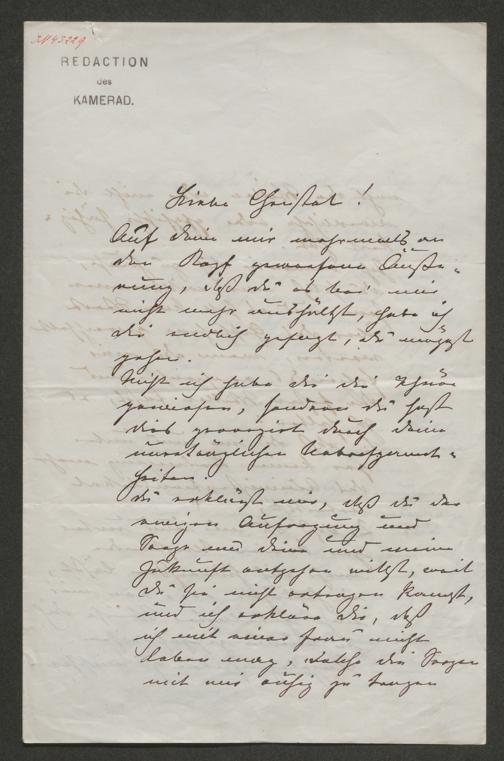 IN 43229
REDACTION
des
KAMERAD.
Liebe Christel!
Auf Deine mir mehrmals an
den Kopf geworfene Äuße-
rung, daß du es bei mir
nicht mehr aushältst, habe ich
dir endlich gesagt, du mögest
gehen.
Nicht ich habe dir die Thüre
gewiesen, sondern du hast
dies provozirt durch deine
unerträglichen
Du erklärst mir, daß du der
ewigen Aufregung und
Sorge um deine und meine
Zukunft entgehen willst, weil
du sie nicht ertragen kannst,
und ich erkläre dir, daß
ich mit einer Frau nicht
leben mag, welche die Sorgen
mit mir ruhig zu tragen